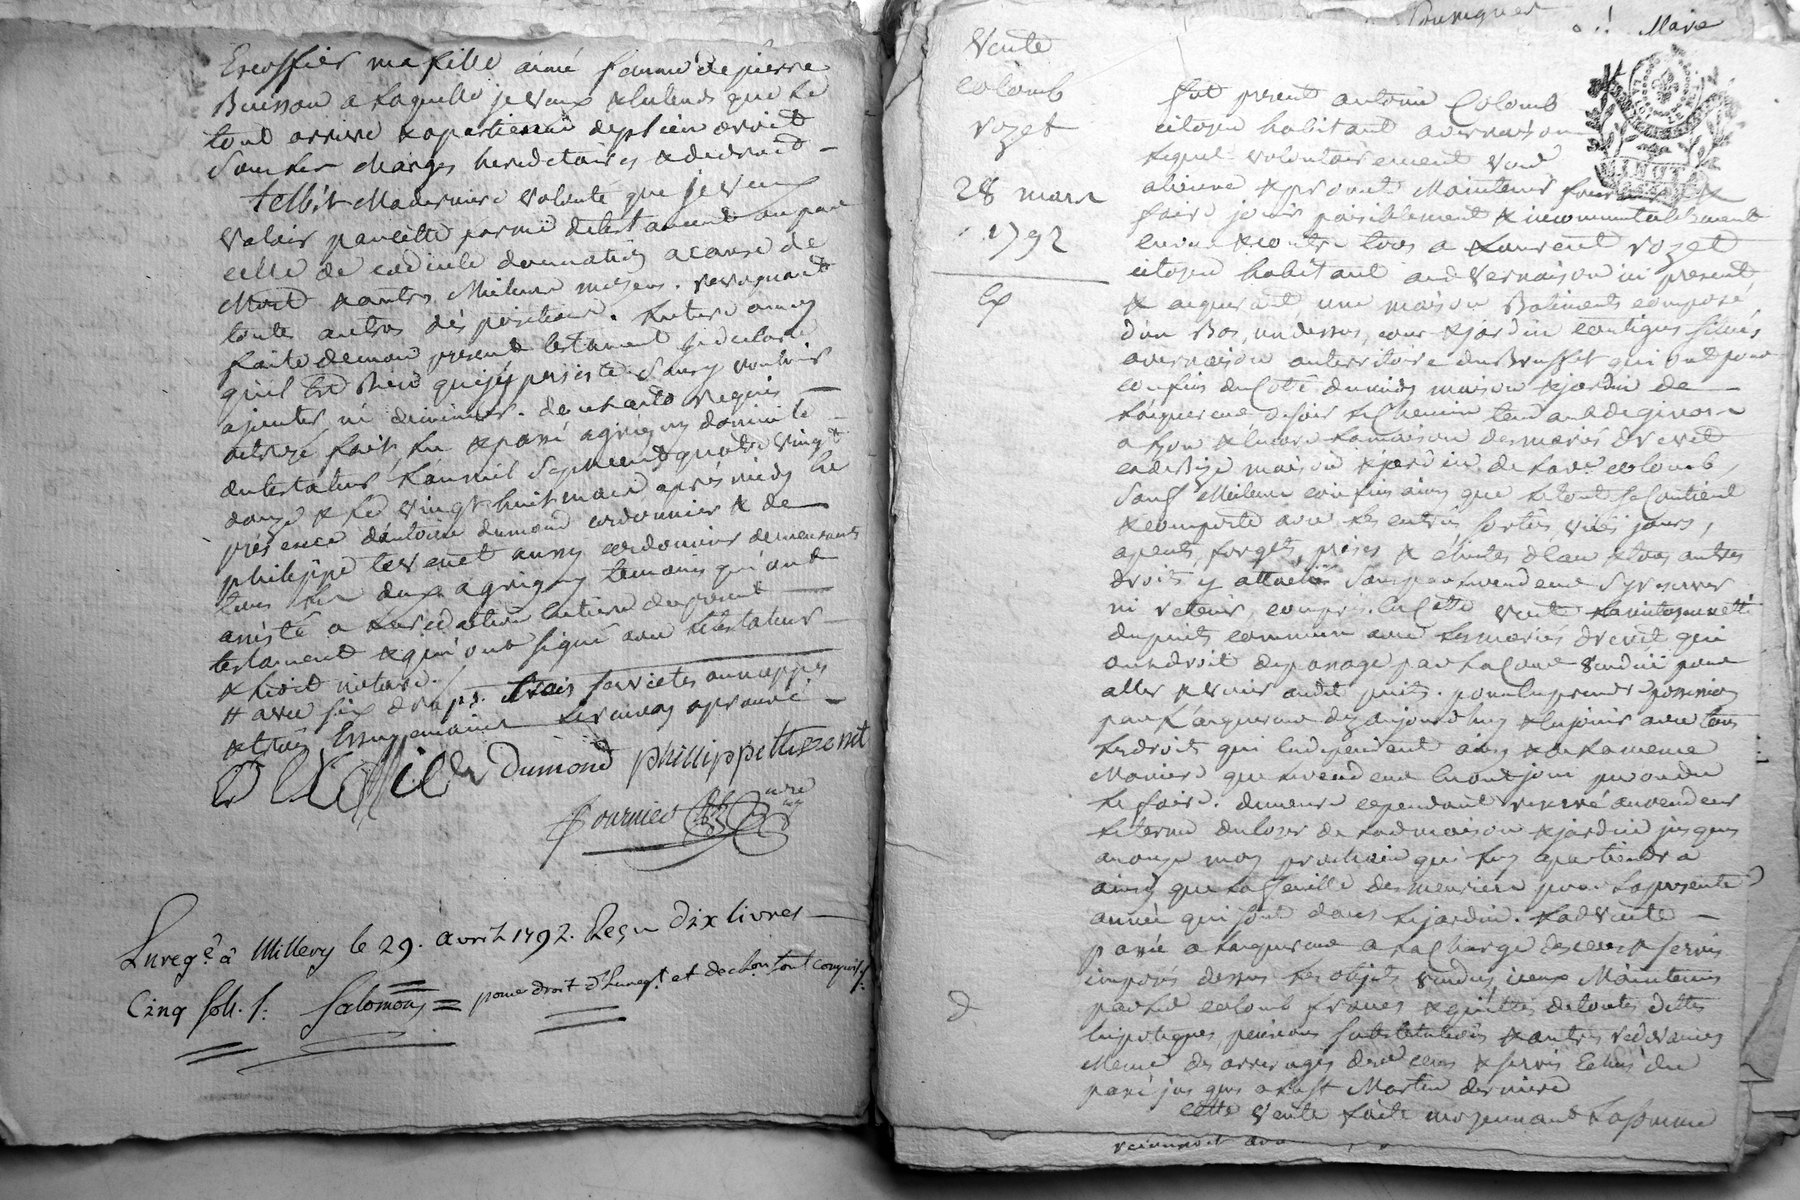 ma fille aimé femme de pierre
Buisson a laquelle je veux & entends que le
tout arrive & apartienne de plein droit
sous les charges hereditaires & de droit
telle est Ma derniere volonté que je veux
valoir par cette forme de testament ou par
celle de codicile donnation a cause de
Mort & autres Meilleurs moyens. revoquant
toutes autres dispositions. lecture a luy
faite de mon present testament je declare
qu'il est bien qu'ainsy persiste sans y vouloir
ajouter, ni diminuer. dont acte requis
octroyé fait, lu & passé a grigny domicile
du testateur l'an mil sept cent quatre vingt
douze & le vingt huit mars après midy En
présence d'antoine dumond cordonnier & de
philippe tevenet aussy cordonnier demeurants
tous les deux a grigny temoins qui ont
assisté a la redaction lecture du present
testament & qui ont signé avec le testateur
& ledit notaire.
avec six draps. trois serviettes ou nappes
& trois Essuy mains le renvoy aprouvé
Dumond phillippe tevenet
fournier nre
Enregé à Millery le 29. avril 1792. Reçu dix livres
Cinq sols. f. Salomon pour droit d'Enregt. et
Vente
colomb
rozet
28 mars
1792
Ex
fut present antoine Colomb
citoyen habitant a vernaison
lequel volontairement vend
aliene & promet Maintenir
faire jouir paisiblement & incommutablement
envers & contre tous a Laurent rozet
citoyen habitant aud. vernaison ici present
& aquerant, une maison Batiments composé
d'un Bas, un dessus, cour & jardin contigus situés
a vernaison au territoire du qui ont pour
confins du Coté du midy maison & jardin de
l'aquereur de soir le Chemin tendant de givors
a lyon & encore la maison des mariés drevet
et de Bize maison & jardin de la ve. colomb,
sauf Meilleurs confins ainsy que le tout se Contient
& comporte avec ses entrées sorties, vües, jours,
apents, forgets, prises & chutes d'eau & tous autres
droits y attachés sans par le vendeur s'y reserver
ni retenir, compris en cette vente la mitoyenneté
du puits commun avec les mariés drevet qui
ont droit de passage par la Cour vendüe pour
aller & venir audit puits. pour en prendre possession
par l'aquereur dez aujourd'huy & en jouir avec tous
les droits qui en dependent ainsy & de la meme
Maniere que le vendeur en ont joui pu ou du
le faire. demeure cependant reservé au vendeur
le terme du loyer de lad. maison & jardin jusques
a onze may prochain qui luy apartiendra
ainsy que la feuille des meuriers pour la presente
année qui sont dans le jardin. lad. vente
passé a l'aquereur a la Charge des cens & servis
imposés dessus les objets vendus iceux Maintenus
par led. colomb francs & quittes de toutes dettes
hipoteques, pensions substitutions & autres redevances
Meme des arrerages desd. cens & servis Echus du
passé jusques a la St Martin derniere
cette vente faite moyennant la somme